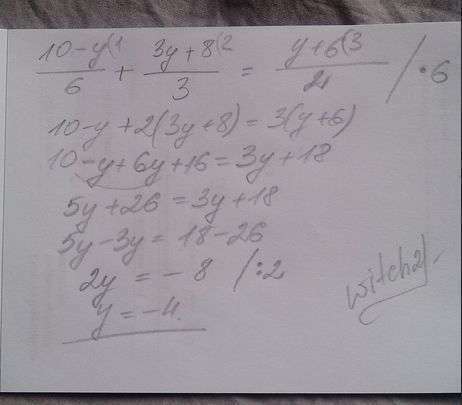 (10-y(1)/6 + (3y+8(2)/3 = (y+6(3)/2 /·6
10-y+2(3y+8)=3(y+6)
10-y+6y+16=3y+18
5y+26=3y+18
5y-3y=18-26
2y=-8 /:2
y=-4.
witch21